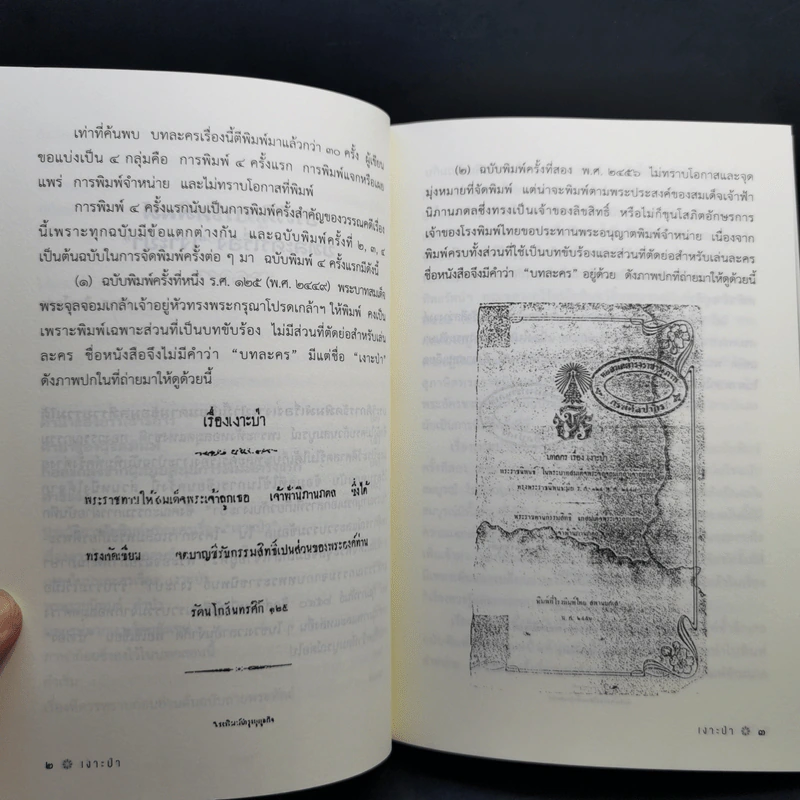 เท่าที่ค้นพบ บทละครเรื่องนี้ตีพิมพ์มาแล้วกว่า ๓๐ ครั้ง ผู้เขียน
ขอแบ่งเป็น ๔ กลุ่มคือ การพิมพ์ ๔ ครั้งแรก การพิมพ์แจกหรือเผย
แพร่ การพิมพ์จำหน่าย และไม่ทราบโอกาสที่พิมพ์
การพิมพ์ ๔ ครั้งแรกนับเป็นการพิมพ์ครั้งสำคัญของวรรณคดีเรื่อง
นี้เพราะทุกฉบับมีข้อแตกต่างกัน และฉบับพิมพ์ครั้งที่ ๒, ๓, ๔
เป็นต้นฉบับในการจัดพิมพ์ครั้งต่อ ๆ มา ฉบับพิมพ์ ๔ ครั้งแรกมีดังนี้
(๑) ฉบับพิมพ์ครั้งที่หนึ่ง ร.ศ. ๑๒๕ (พ.ศ. ๒๔๔๙) พระบาทสมเด็จ
พระจุลจอมเกล้าเจ้าอยู่หัวทรงพระกรุณาโปรดเกล้าฯ ให้พิมพ์ คงเป็น
เพราะพิมพ์เฉพาะส่วนที่เป็นบทขับร้อง ไม่มีส่วนที่ตัดย่อสำหรับเล่น
ละคร ชื่อหนังสือจึงไม่มีคำว่า “บทละคร” มีแต่ชื่อ “เงาะป่า”
ดังภาพปกในที่ถ่ายมาให้ดูดังนี้
เรื่องเงาะป่า
พระราชทานให้สมเด็จพระเจ้าลูกเธอ เจ้าฟ้านิภานภดล ซึ่งได้
ทรงคัดเขียน บาญชีรักกรรมสิทธิ์เปนส่วนของพระองค์ท่าน
รัตนโกสินทรศก ๑๒๕
๒ เงาะป่า
(๒) ฉบับพิมพ์ครั้งที่สอง พ.ศ. ๒๔๕๖ ไม่ทราบโอกาสและจุด
มุ่งหมายที่จัดพิมพ์ แต่น่าจะพิมพ์ตามพระประสงค์ของสมเด็จเจ้าฟ้า
นิภานภดลซึ่งทรงเป็นเจ้าของลิขสิทธิ์ หรือไม่ก็ขุนโสภิตอักษรการ
เจ้าของโรงพิมพ์ไทยขอประทานพระอนุญาตพิมพ์จำหน่าย เนื่องจาก
พิมพ์ครบทั้งส่วนที่ใช้เป็นบทขับร้องและส่วนที่ตัดย่อสำหรับเล่นละคร
ชื่อหนังสือจึงมีคำว่า “บทละคร” อยู่ด้วย ดังภาพปกที่ถ่ายมาให้ดูดังนี้
บทละคร เรื่อง เงาะป่า
เงาะป่า ๓